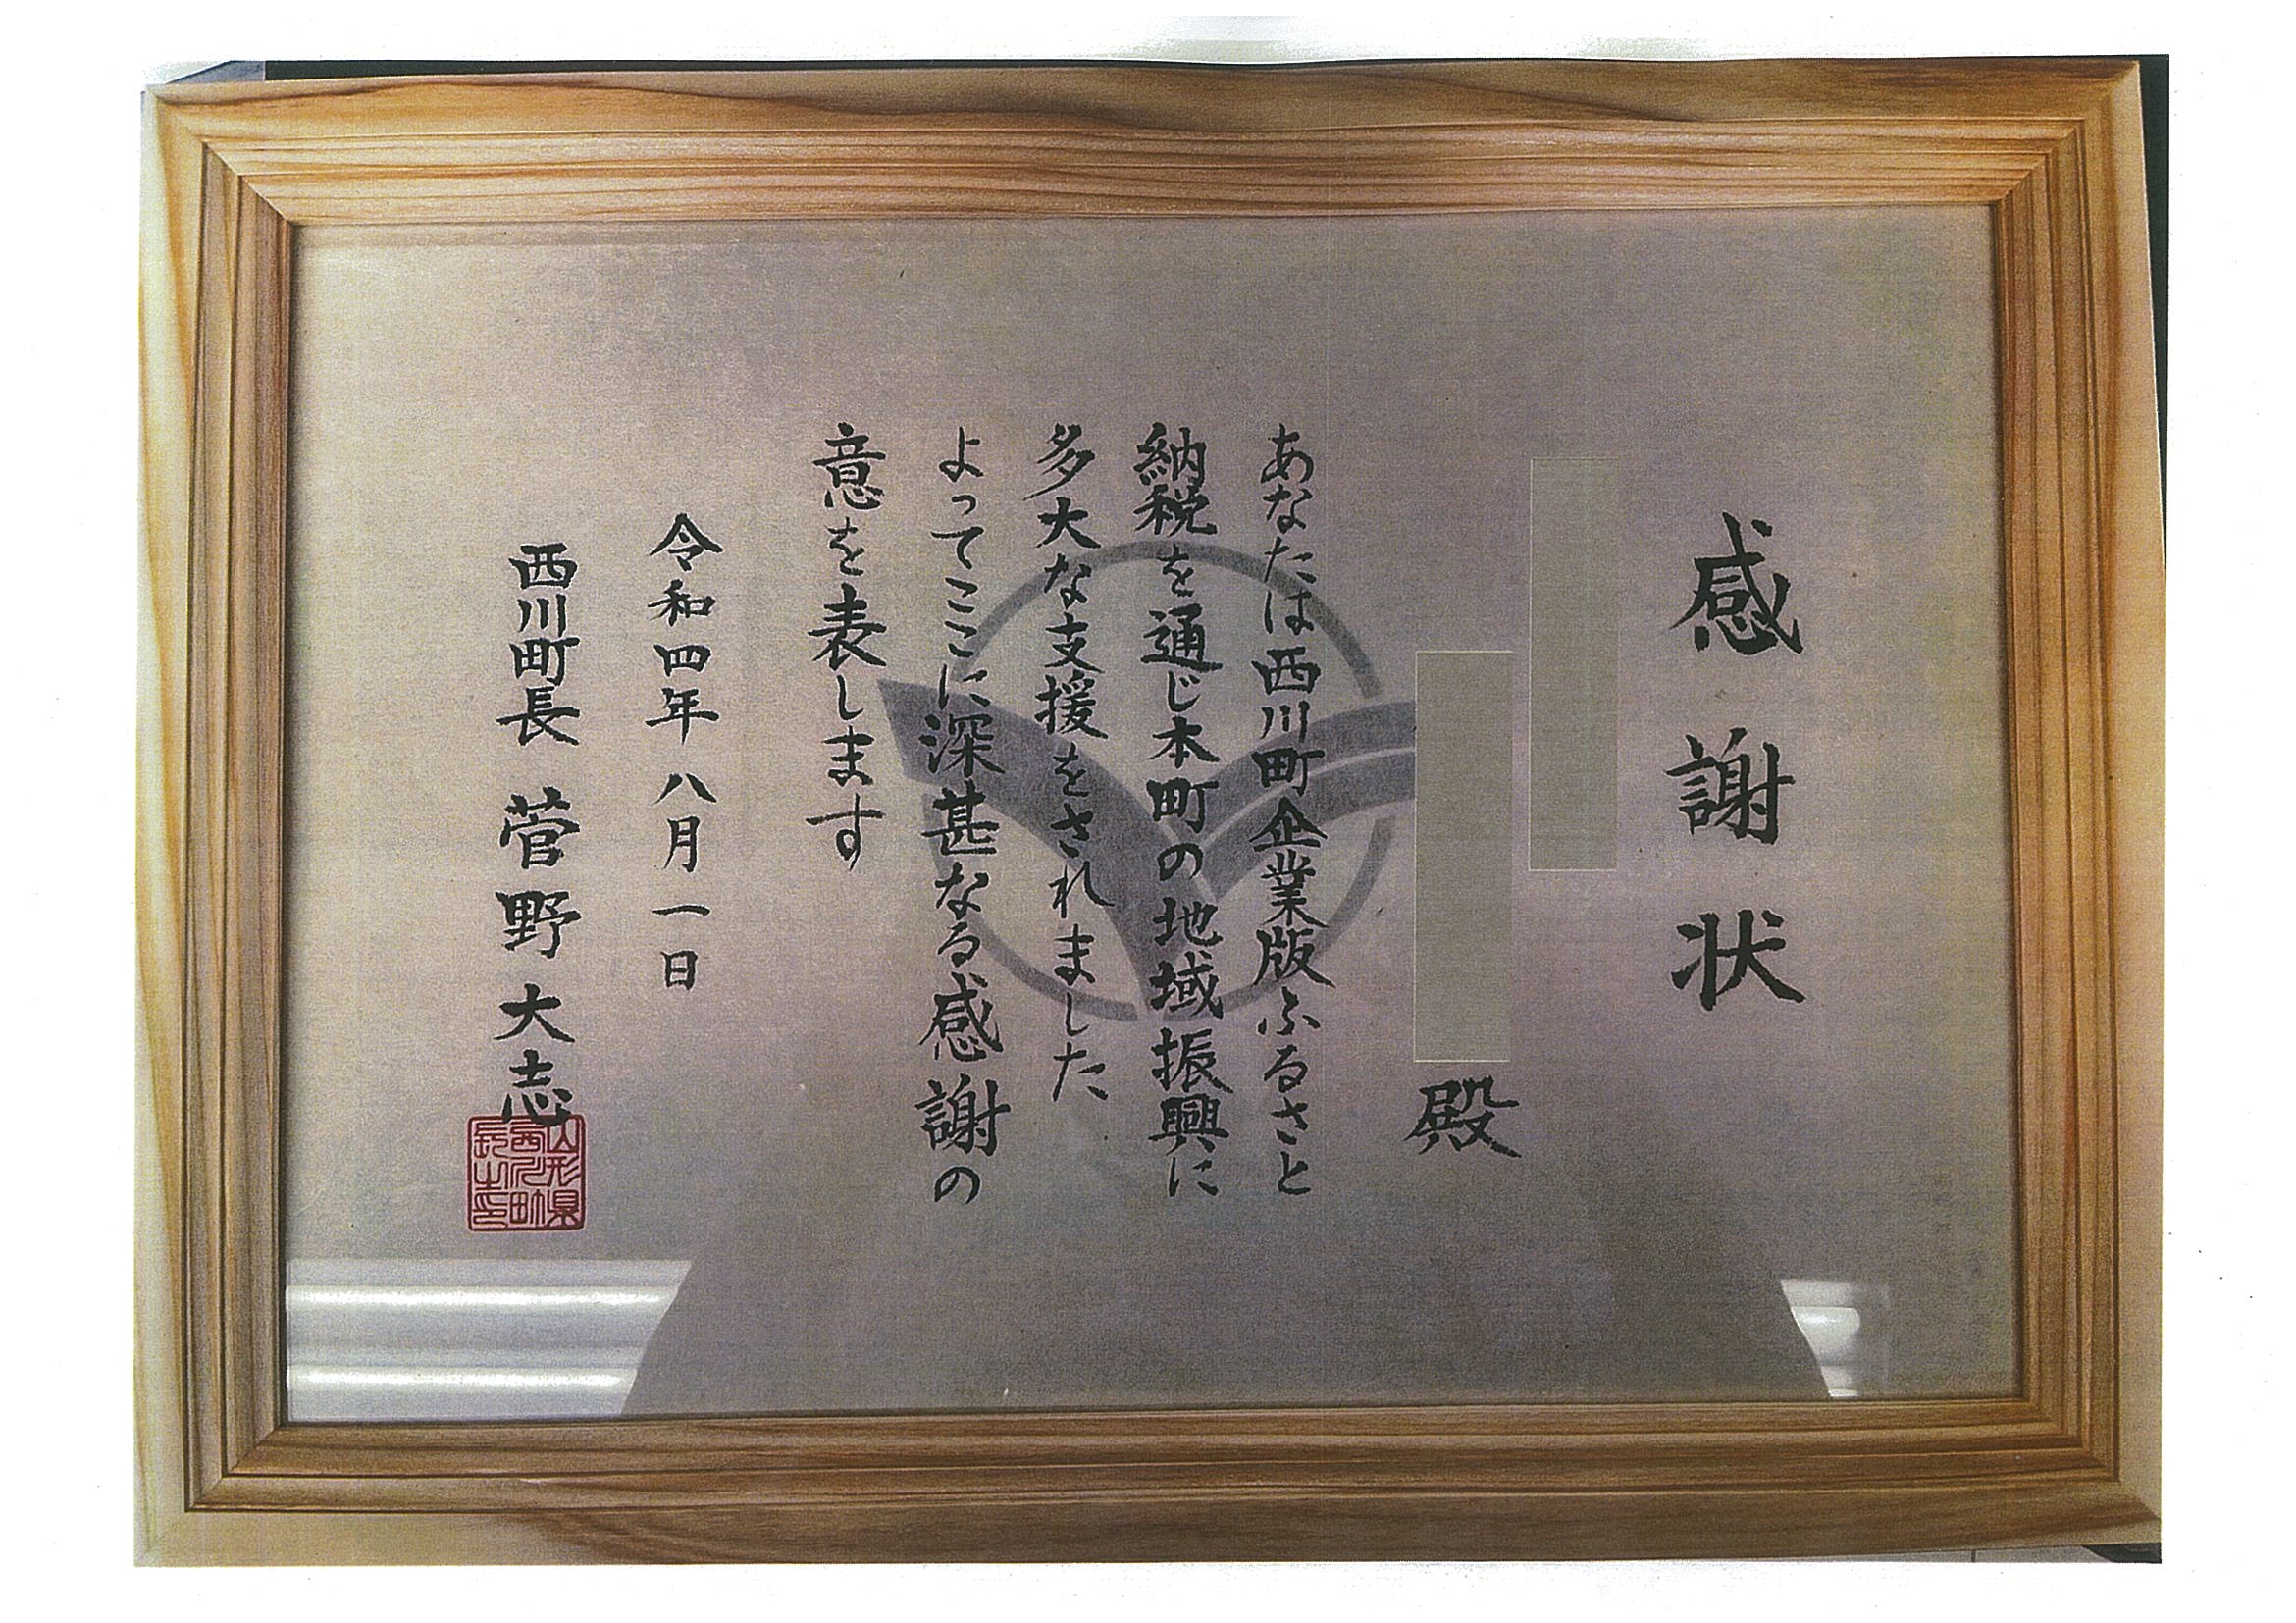 感謝状
殿
あなたは西川町企業版ふるさと
納税を通じ本町の地域振興に
多大な支援をされました
よってここに深甚なる感謝の
意を表します
令和四年八月一日
西川町長 菅野大志
山形県
西川町
長之印